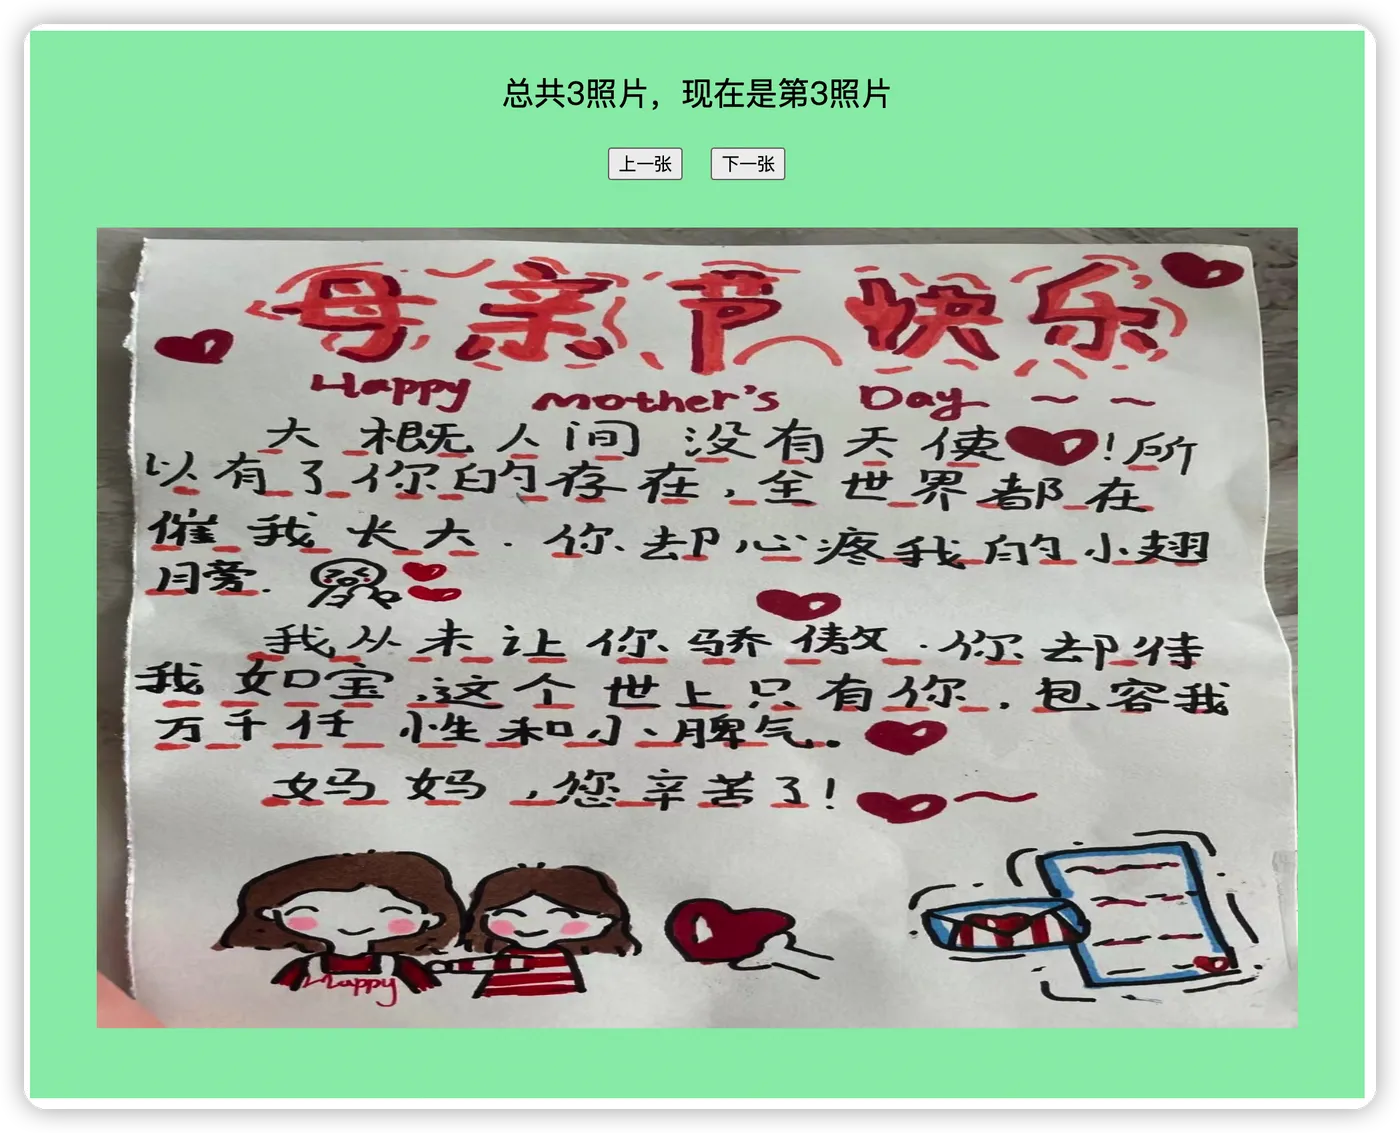 总共3照片，现在是第3照片
上一张 下一张
母亲节快乐
Happy mother's Day ~ ~
大概人间没有天使！所
以有了你的存在，全世界都在
催我长大．你却心疼我的小翅
膀．
我从未让你骄傲．你却待
我如宝，这个世上只有你，包容我
万千任性和小脾气。
妈妈，您辛苦了！
Happy